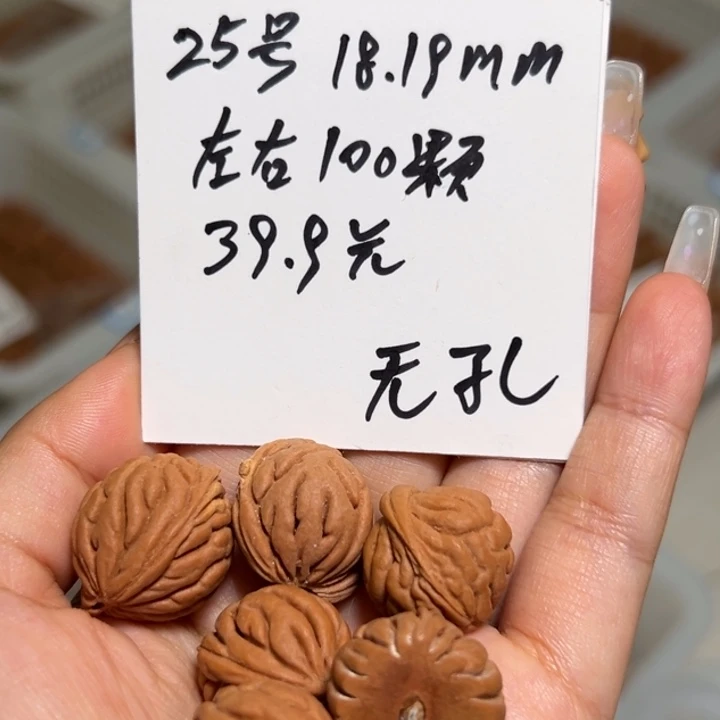 25号 18.19mm
左右 100颗
39.9元
无孔